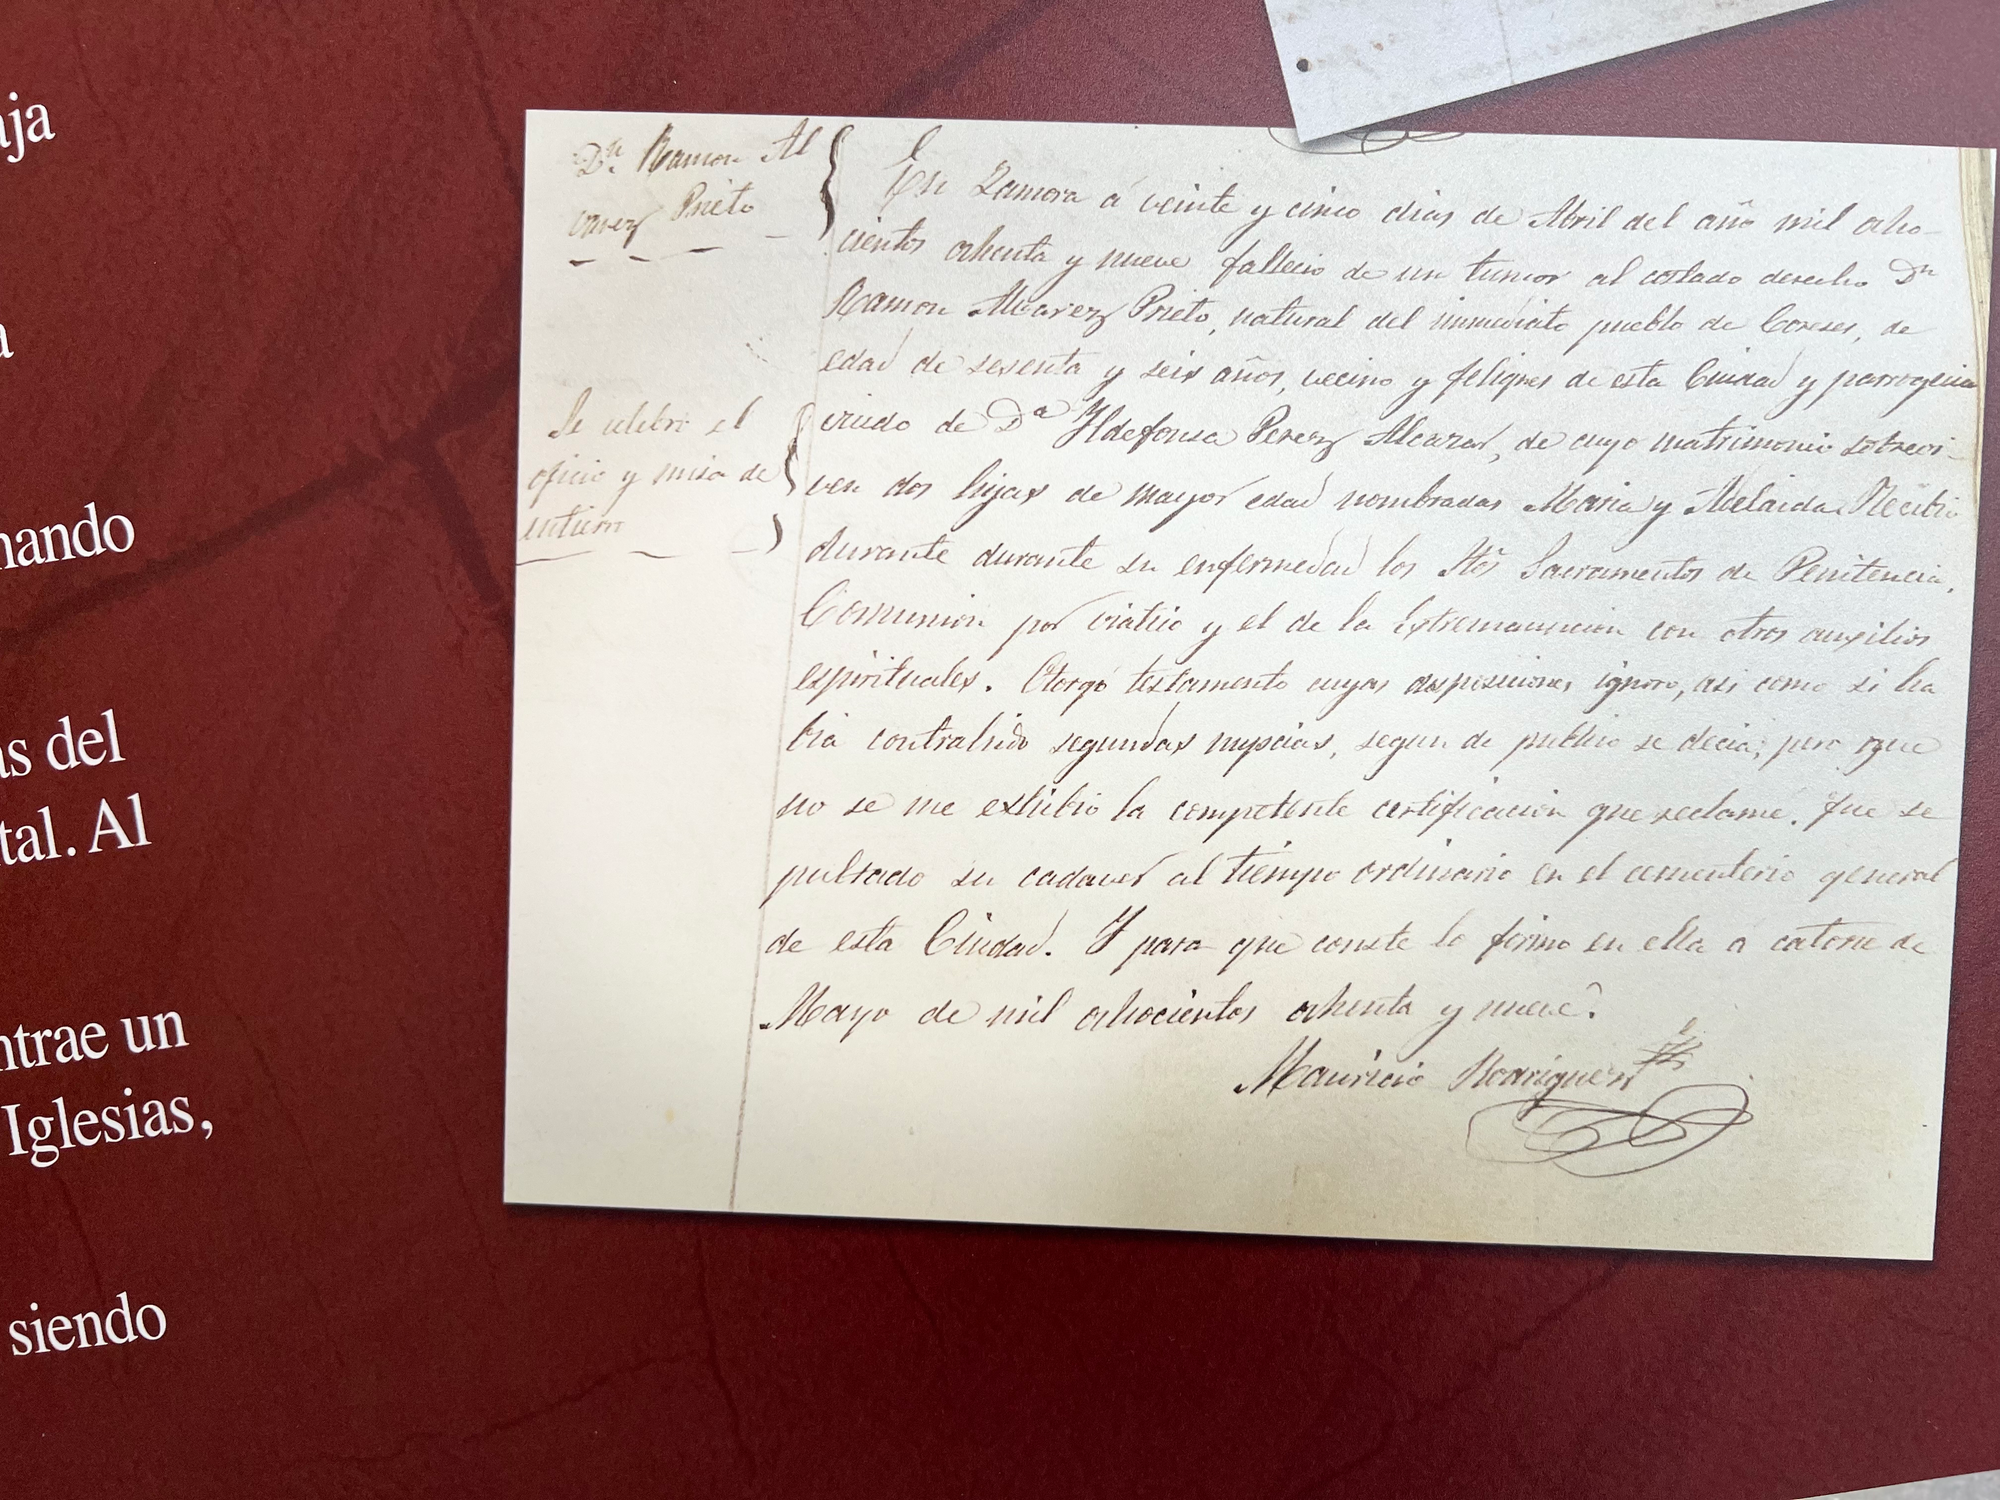 aja
a
nando
as del
tal. Al
ntrae un
Iglesias,
siendo
Dn Ramon Al
varez Prieto
Se celebró el
oficio y misa de
entierro
En Zamora á veinte y cinco dias de Abril del año mil ocho-
cientos ochenta y nueve falleció de un tumor al costado derecho Dn
Ramon Alvarez Prieto, natural del inmediato pueblo de Coreses, de
edad de sesenta y seis años, vecino y feligres de esta Ciudad y parroquia
viudo de Da Yldefonsa Perez Alcazar, de cuyo matrimonio sobrevi-
ven dos hijas de mayor edad nombradas Maria y Adelaida. Recibió
durante durante su enfermedad los Stos Sacramentos de Penitencia,
Comunion por viatico y el de la Extremauncion con otros auxilios
espirituales. Otorgó testamento cuyas disposiciones ignoro, asi como si ha
bia contrahido segundas nupcias, segun de publico se decia; pero que
no se me exhibió la competente certificacion que reclamé. Fue se
pultado su cadaver al tiempo ordinario en el cementerio general
de esta Ciudad. Y para que conste lo firmo en ella á catorce de
Mayo de mil ochocientos ochenta y nueve.
Mauricio Rodriguez